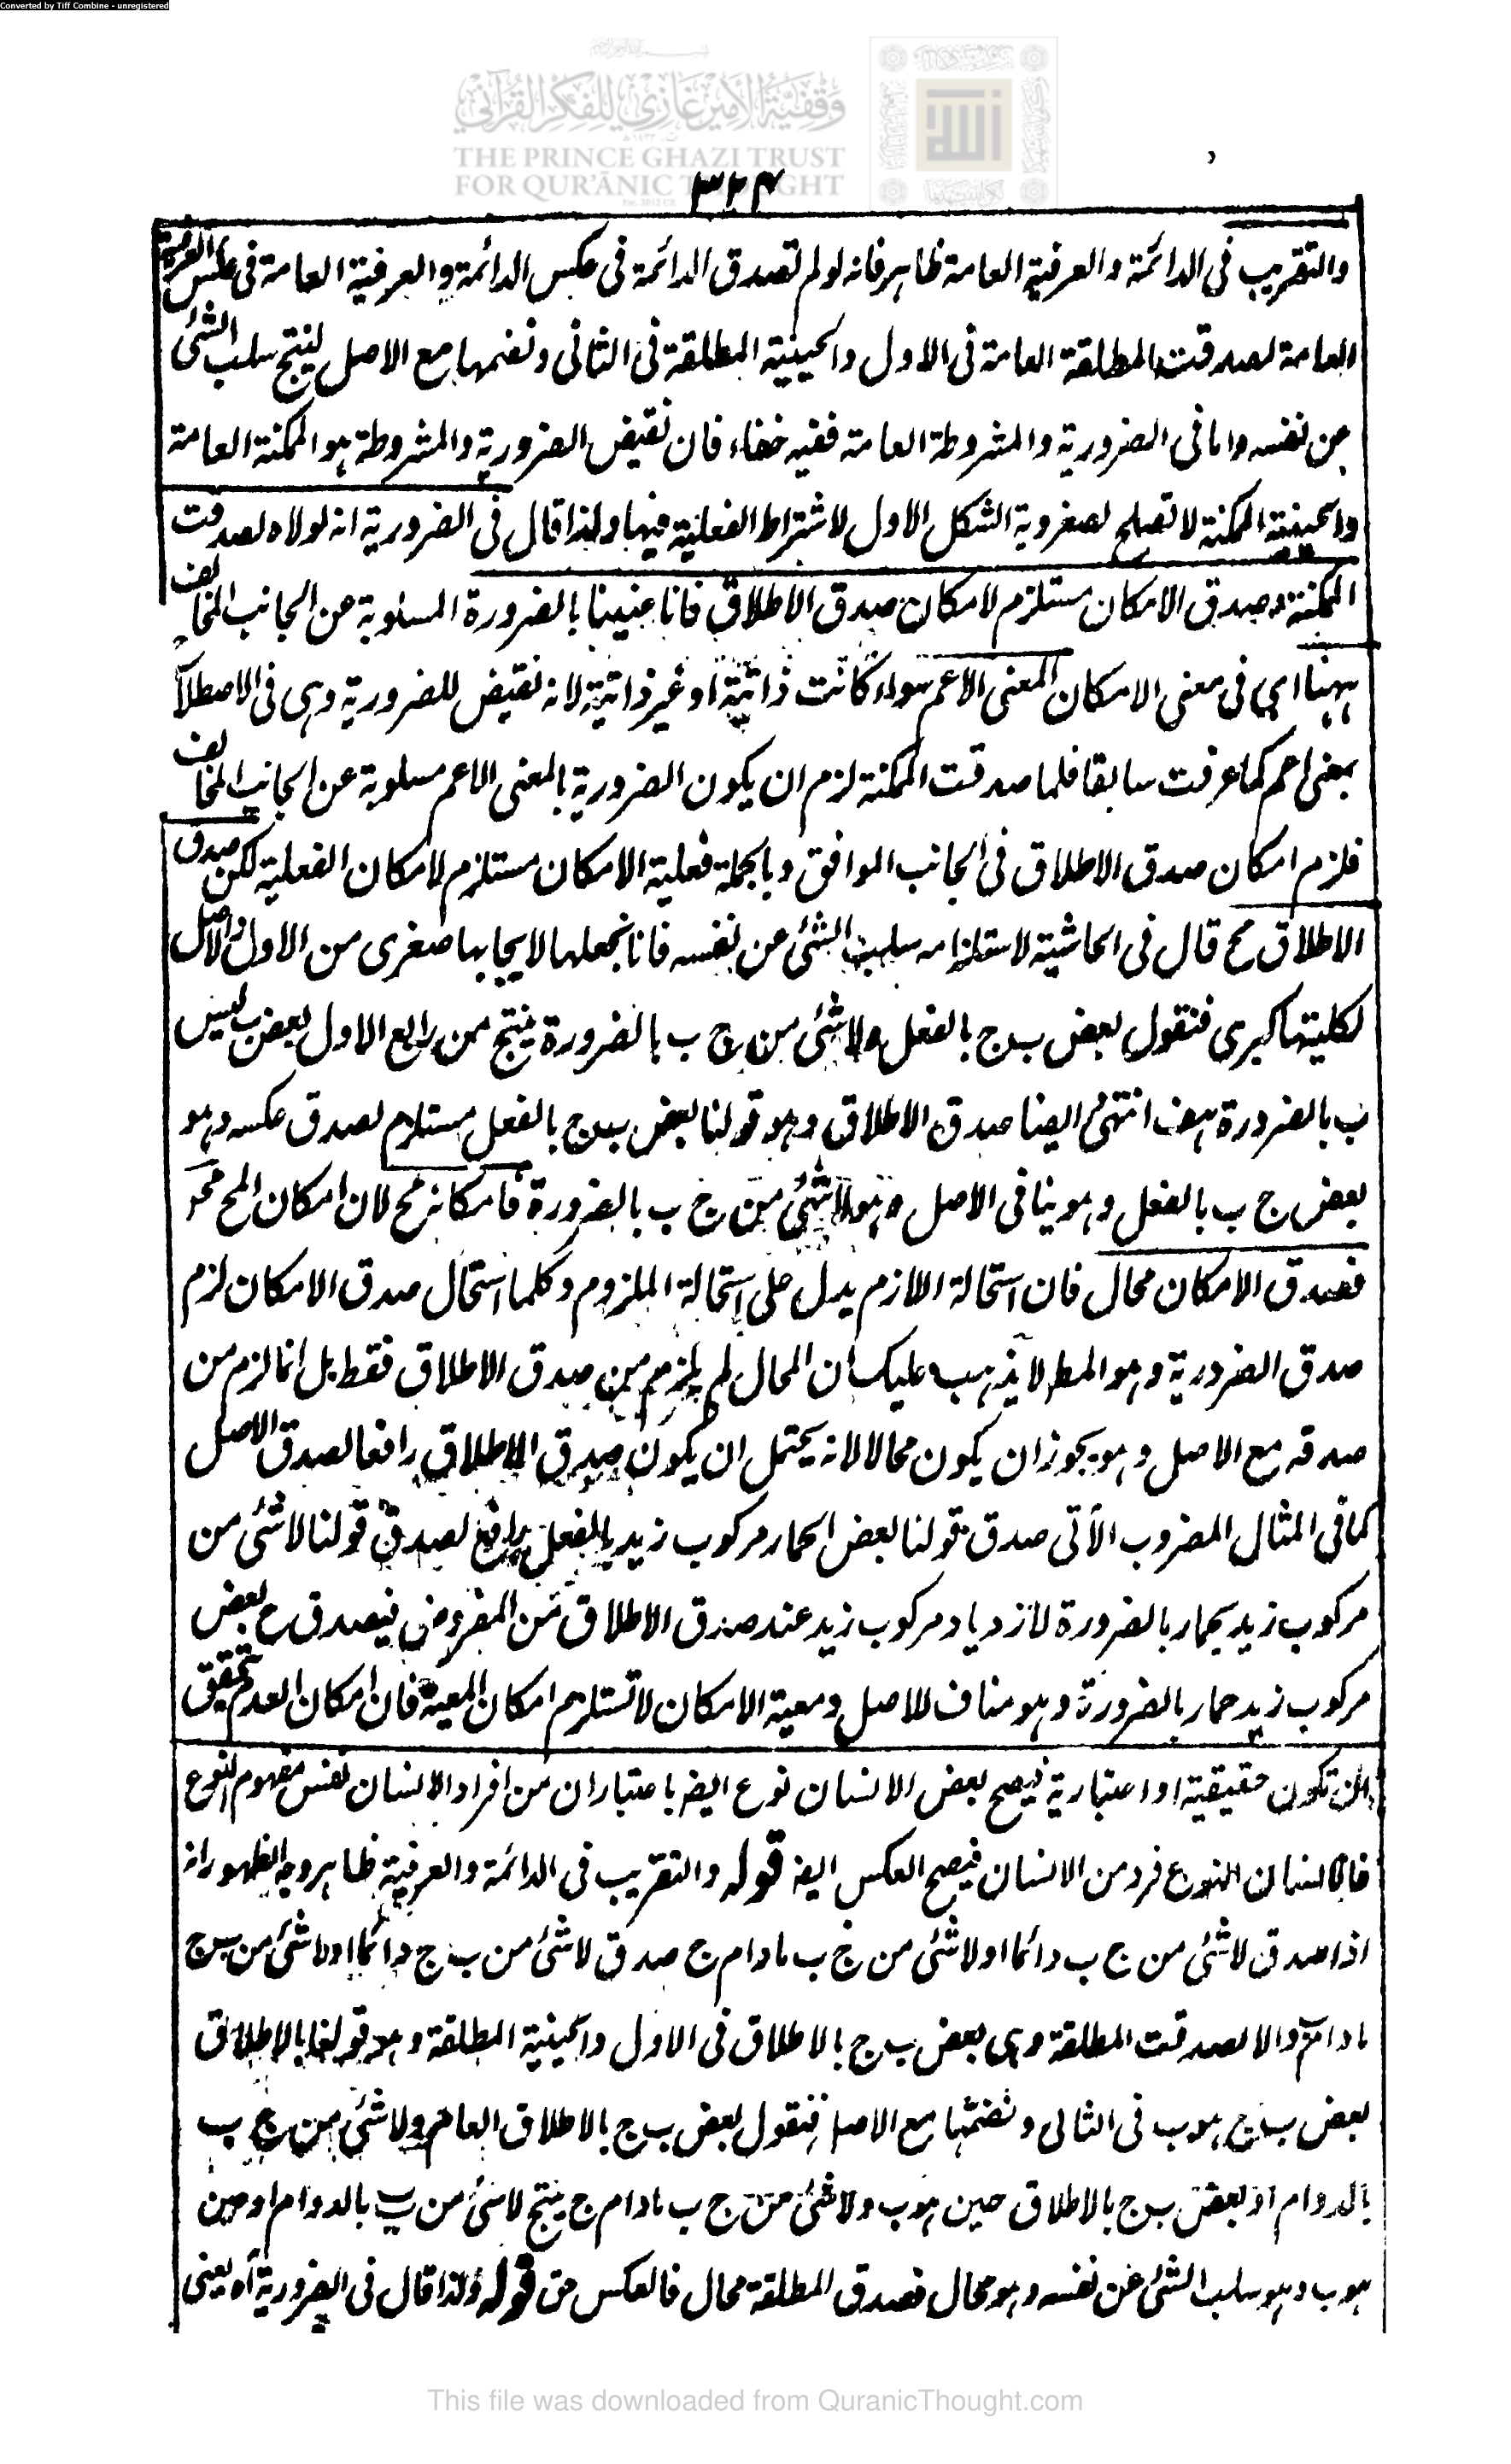 Converted by Tiff Combine - unregistered
وقفية الأمير غازي للفكر القرآني
THE PRINCE GHAZI TRUST
FOR QUR'ĀNIC THOUGHT
٣٢٤
والتقريب في الدائمة والعرفية العامة ظاهر فانه لو لم تصدق الدائمة في عكس الدائمة والعرفية العامة في عكس العرفية
العامة لصدقت المطلقة العامة في الاول والحينية المطلقة في الثاني ونضمها مع الاصل لينتج سلب الشئ
عن نفسه واما في الضرورية والمشروطة العامة ففيه خفاء فان نقيض الضرورية والمشروطة هو الممكنة العامة
والحينية الممكنة لا تصلح لصغروية الشكل الاول لاشتراط الفعلية فيها ولذا قال في الضرورية انه لولاه لصدقت
الممكنة وصدق الامكان مستلزم لامكان صدق الاطلاق فانا عنينا بالضرورة المسلوبة عن الجانب المخالف
ههنا اي في معنى الامكان المعنى الاعم سواء كانت ذاتية او غير ذاتية لانه نقيض للضرورية وهي في الاصطلاح
بمعنى اعم كما عرفت سابقا فلما صدقت الممكنة لزم ان يكون الضرورية بالمعنى الاعم مسلوبة عن الجانب المخالف
فلزم امكان صدق الاطلاق في الجانب الموافق وبالجملة فعلية الامكان مستلزم لامكان الفعلية لكن صدق
الاطلاق مح قال في الحاشية لاستلزامه سلب الشئ عن نفسه فانا نجعلها لايجابها صغرى من الاول والاصل
لكليتها كبرى فنقول بعض ب ج بالفعل ولا شئ من ج ب بالضرورة ينتج من رابع الاول بعض ب ليس
ب بالضرورة هف انتهى ايضا صدق الاطلاق وهو قولنا بعض ب ج بالفعل مستلزم لصدق عكسه وهو
بعض ج ب بالفعل وهو ينافي الاصل وهو لا شئ من ج ب بالضرورة فامكانه مح لان امكان المح مح
فصدق الامكان محال فان استحالة اللازم يدل على استحالة الملزوم وكلما استحال صدق الامكان لزم
صدق الضرورية وهو المط لا يذهب عليك ان المحال لم يلزم من صدق الاطلاق فقط بل انما لزم من
صدقه مع الاصل وهو يجوز ان يكون محالا لانه يحتمل ان يكون صدق الاطلاق رافعا لصدق الاصل
كما في المثال المضروب الآتي صدق قولنا بعض الحمار مركوب زيد بالفعل رافع لصدق قولنا لا شئ من
مركوب زيد بحمار بالضرورة لازدياد مركوب زيد عند صدق الاطلاق من المفروض فيصدق ح بعض
مركوب زيد حمار بالضرورة وهو مناف للاصل ومعية الامكان لا تستلزم امكان المعية فان امكان العدم تحقيق
ان تكون حقيقية او اعتبارية فيصح بعض الانسان نوع ايضا باعتبار ان من افراد الانسان نفس مفهوم النوع
فالانسان النوع فرد من الانسان فيصح العكس ايض قوله والتقريب في الدائمة والعرفية ظاهر وجه الظهور انه
اذا صدق لا شئ من ج ب دائما او لا شئ من ج ب مادام ج صدق لا شئ من ب ج دائما او لا شئ من ب ج
مادام ب والا لصدقت المطلقة وهي بعض ب ج بالاطلاق في الاول والحينية المطلقة وهو قولنا بالاطلاق
بعض ب ج هو ب في الثاني ونضمها مع الاصل فنقول بعض ب ج بالاطلاق العام ولا شئ من ج ب
بالدوام او بعض ب ج بالاطلاق حين هو ب ولا شئ من ج ب مادام ج ينتج لا شئ من ب ب بالدوام او حين
هو ب وهو سلب الشئ عن نفسه وهو محال فصدق المطلقة محال فالعكس حق قوله ولذا قال في الضرورية آه يعني
This file was downloaded from QuranicThought.com